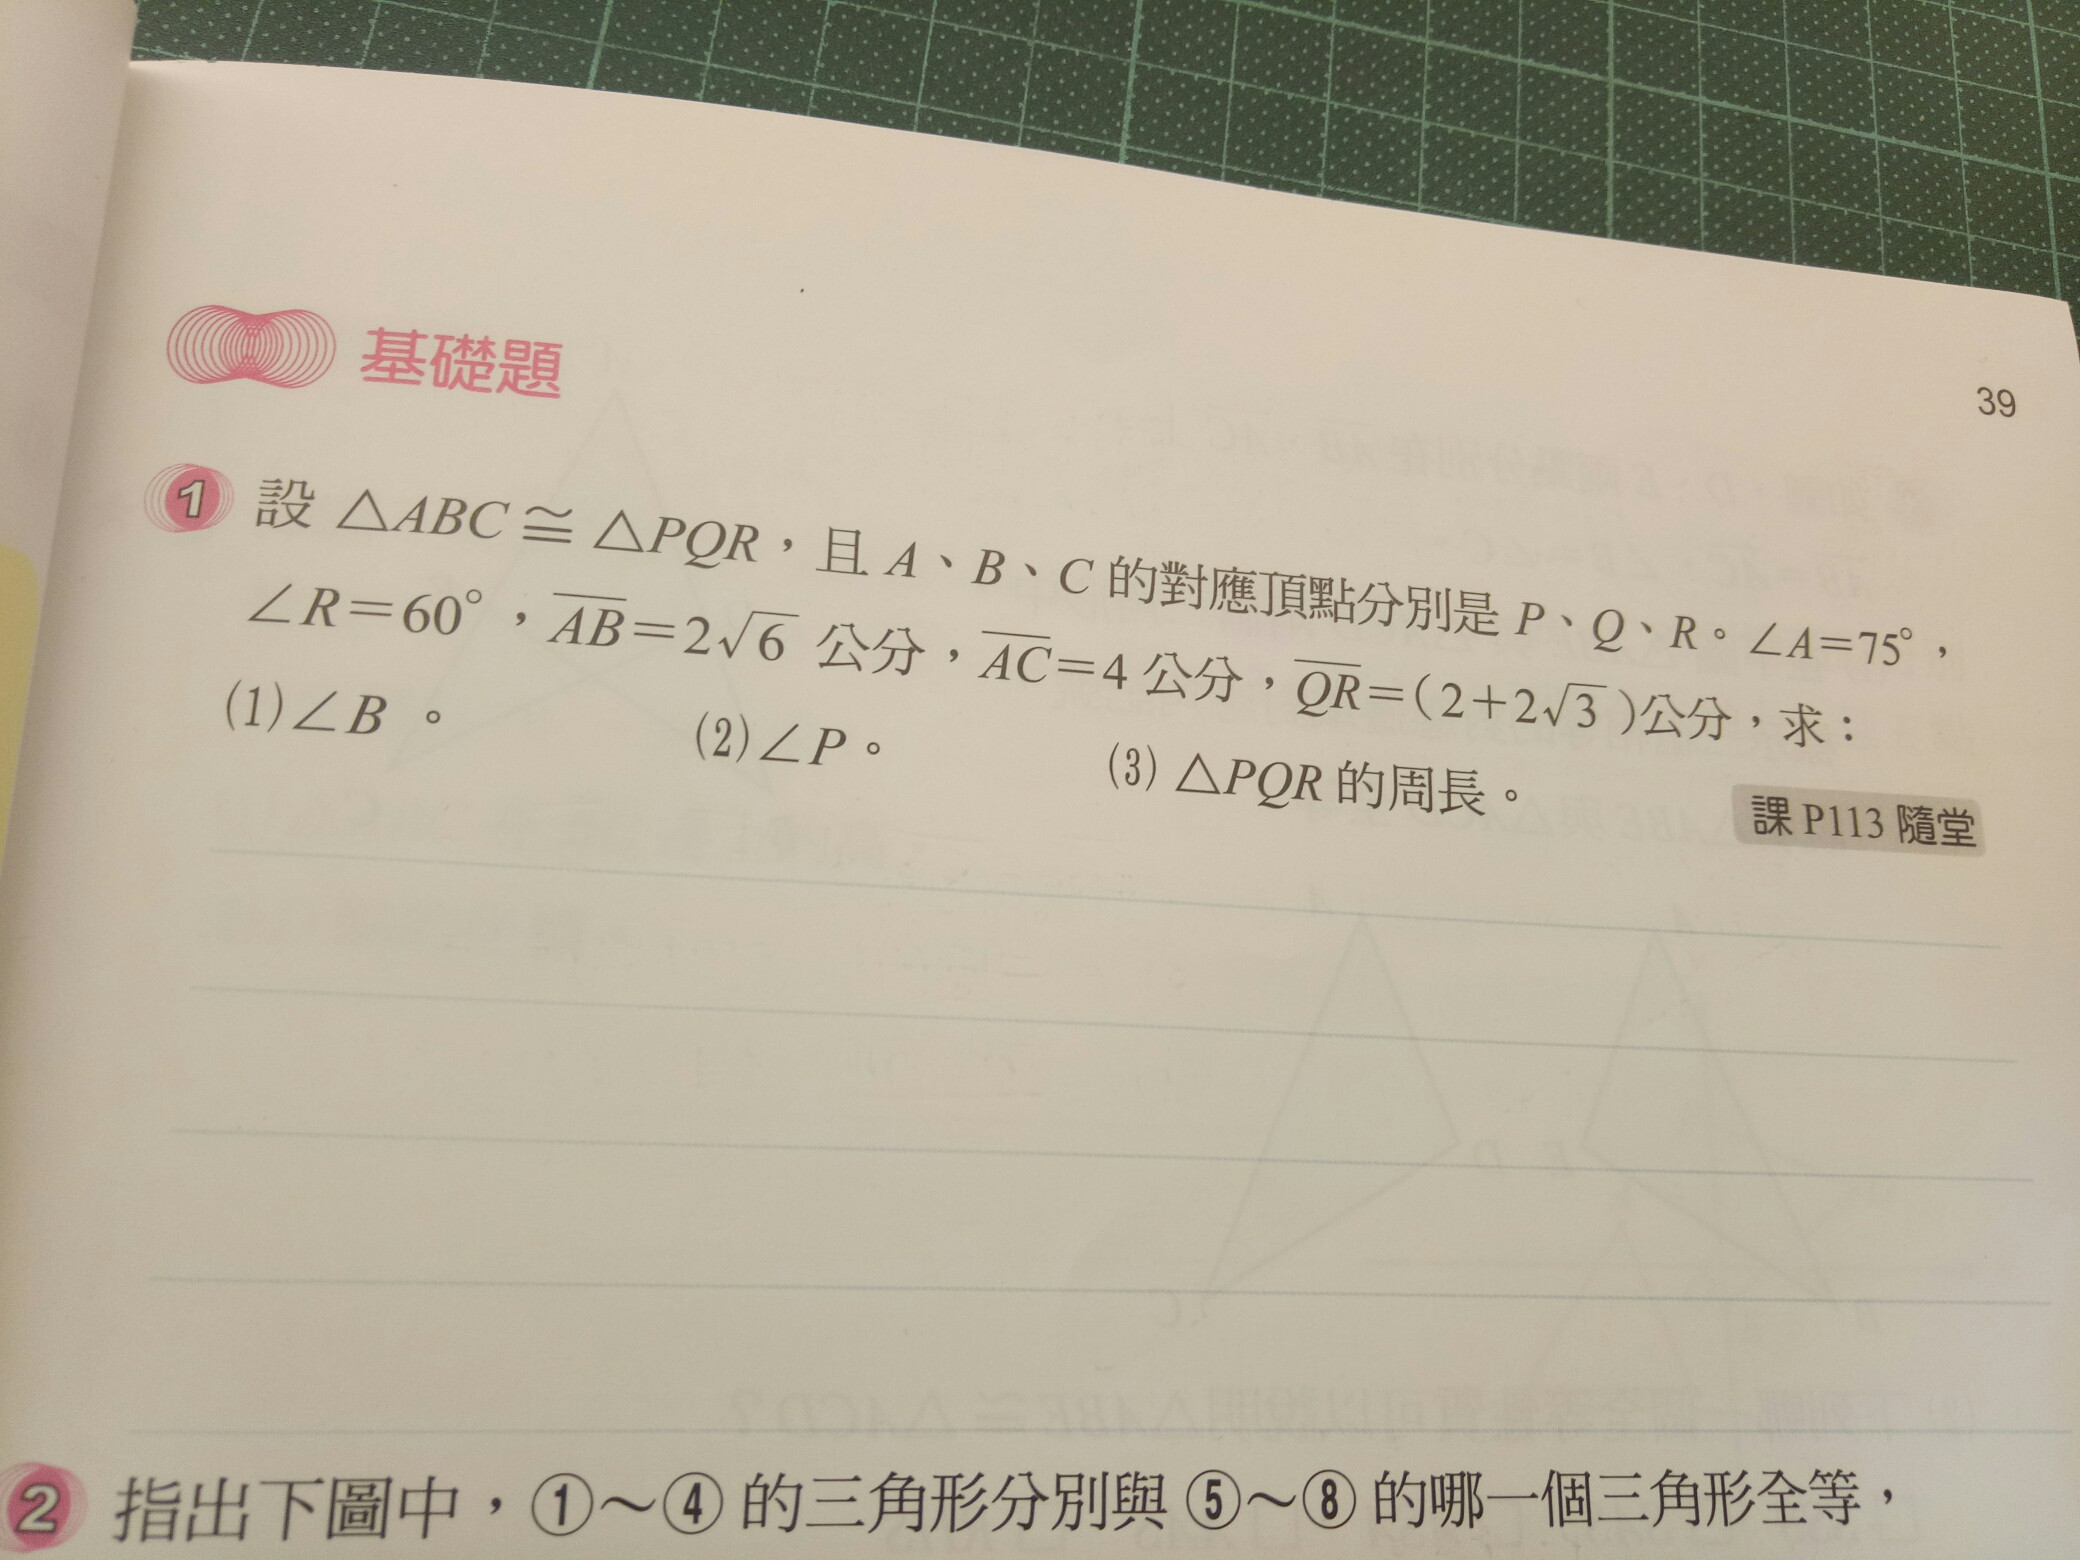 39
基礎題
1 設 △ABC ≅ △PQR，且 A、B、C 的對應頂點分別是 P、Q、R。∠A＝75°，
∠R＝60°，A̅B̅＝2√6 公分，A̅C̅＝4 公分，Q̅R̅＝(2＋2√3)公分，求：
(1)∠B 。 (2)∠P。 (3) △PQR 的周長。
課 P113 隨堂
2 指出下圖中，①～④ 的三角形分別與 ⑤～⑧ 的哪一個三角形全等，